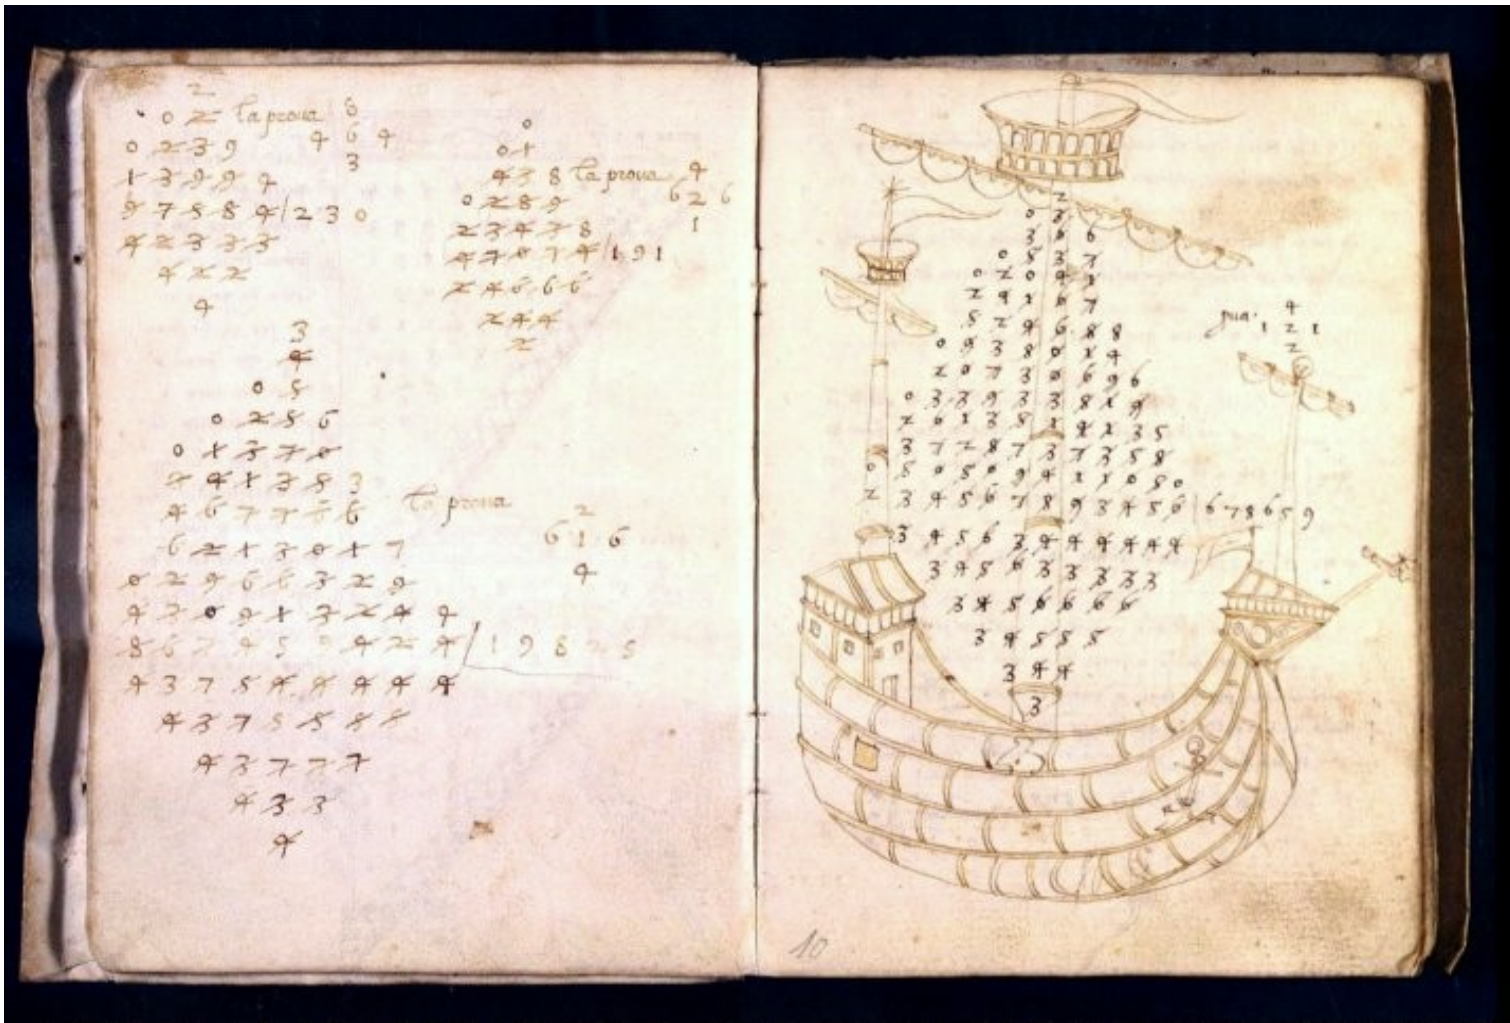 2
0 2 la prova 8
0 2 3 9 4 6 4
3
1 3 9 9 4
9 7 5 8 4 / 2 3 0
4 2 3 3 3
4 2 2
4
0
0 1
4 3 8 la prova 4
0 2 8 9 6 2 6
2 3 4 3 8 1
4 7 0 7 4 / 1 9 1
2 4 6 6 6
2 4 4
2
3
4
0 5
0 2 5 6
0 1 3 7 0
4 6 7 7 6 6 la prova
2
6 2 1 3 0 1 7 6 1 6
0 2 9 6 6 3 2 9 4
4 3 7 5 4 4 4 4 4 4
4 3 7 5 5 5 5
4 3 7 7 7
4 3 3
4
2
0 3
3 6 6
0 8 3 7
0 2 0 9 1
2 9 1 6 7
5 2 4 6 8 8
0 9 3 8 0 1 4
2 0 7 3 0 6 9 6
0 3 3 9 3 3 8 1 9
2 6 1 3 5 1 4 1 3 5
3 7 7 2 8 7 3 7 3 5 8
0 5 0 5 0 9 4 1 1 0 8 0
2 3 4 5 6 7 8 9 3 4 5 6 / 6 7 8 6 5 9
3 4 5 6 3 4 4 4 4 4 4
3 4 5 6 3 3 3 3 3
3 4 5 6 6 6 6
3 4 5 5 5
3 4 4
3
4
pua. 1 2 1
2
10